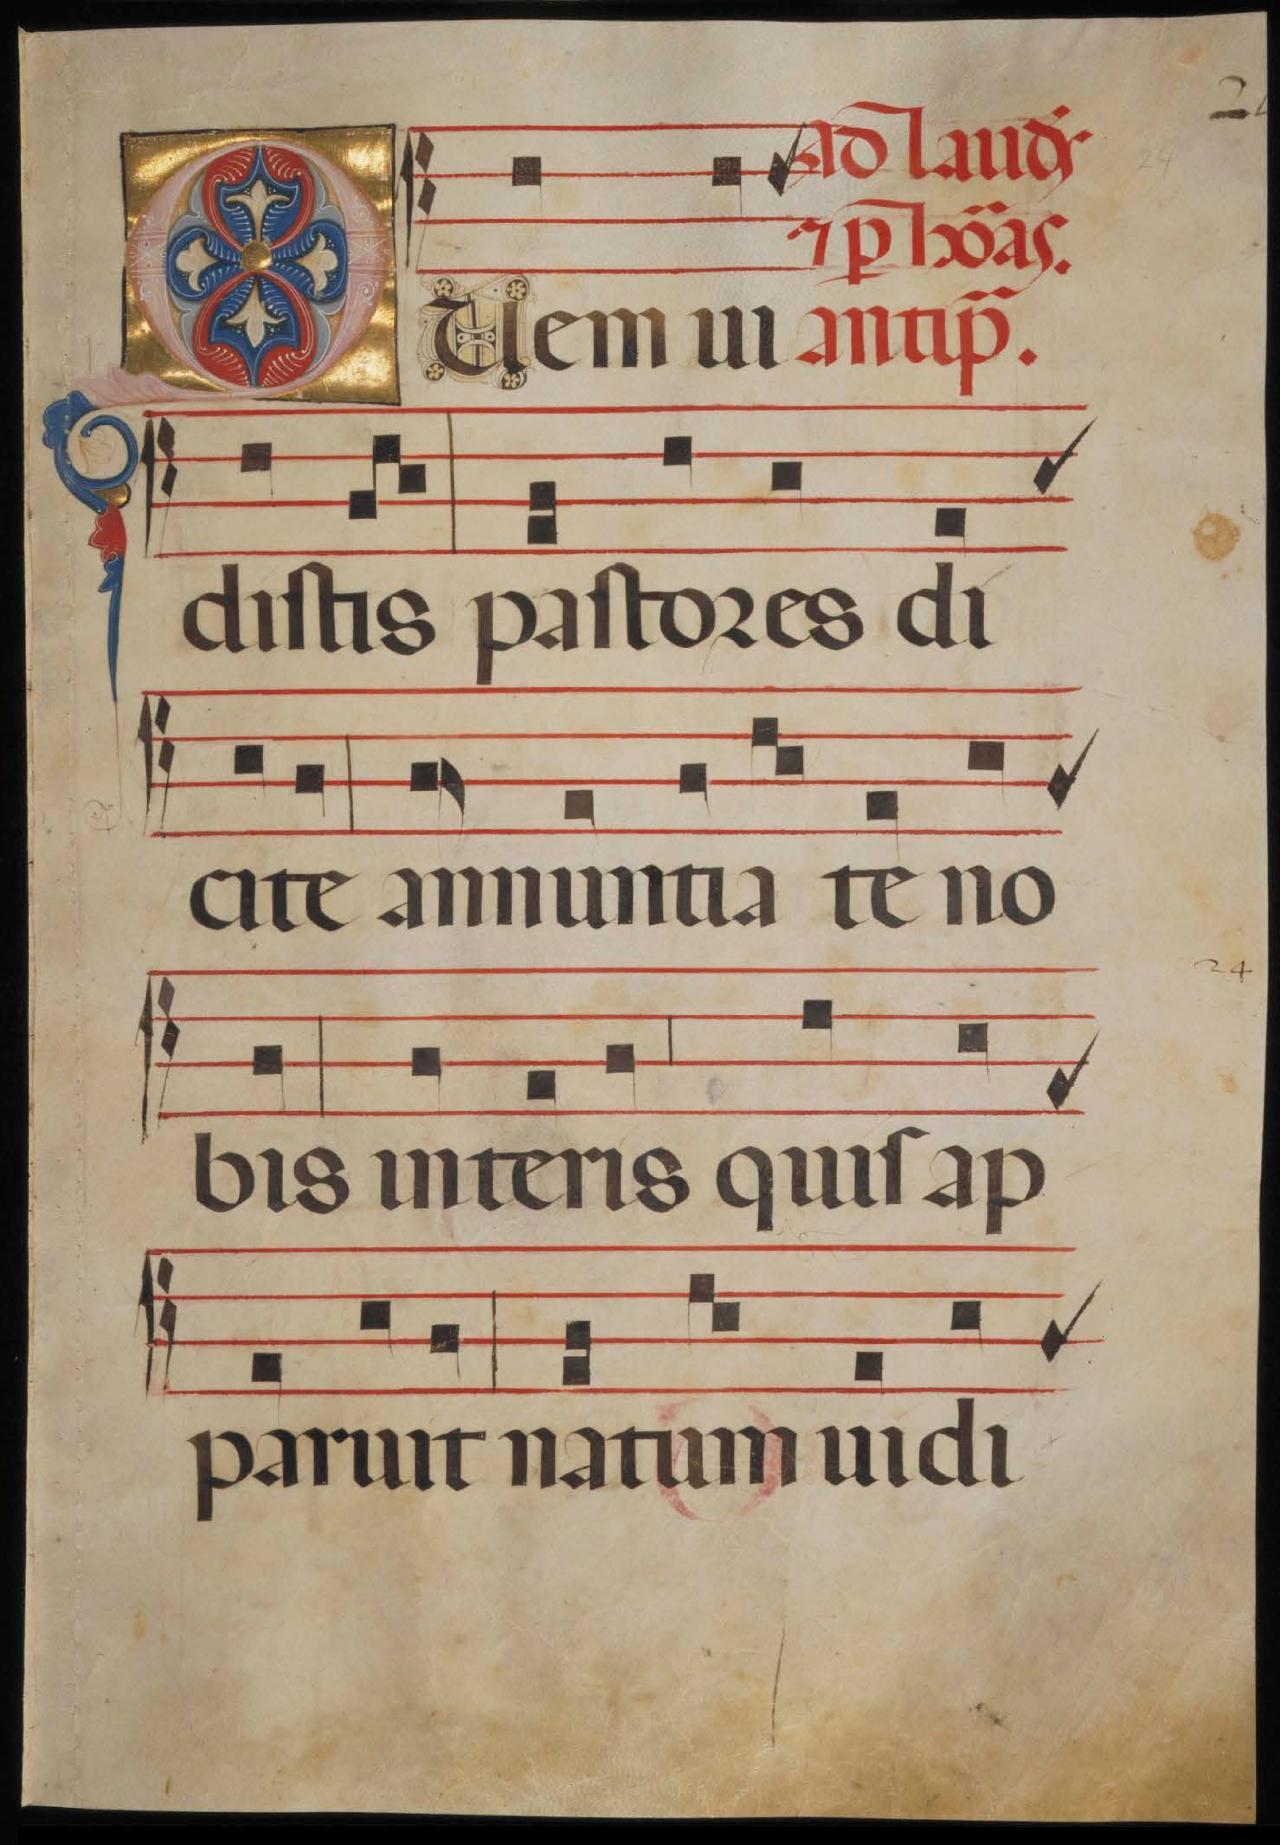 Ad laud̄
⁊ p̄ horas.
QUem ui antip̄.
distis pastores di
cite annuntia te no
bis interis quis ap
paruit natum uidi
24
24